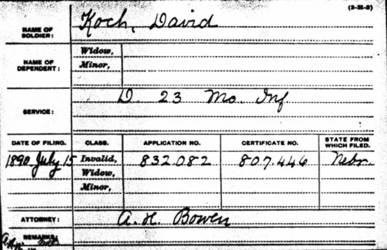 (3-25-5)
NAME OF SOLDIER: Koch, David
NAME OF DEPENDENT: Widow,
Minor,
SERVICE: D. 23 Mo. Inf
DATE OF FILING. CLASS. APPLICATION NO. CERTIFICATE NO. STATE FROM WHICH FILED.
1890 July 15 Invalid, 832.082 807.446 Nebr.
Widow,
Minor,
ATTORNEY: A. H. Bowen
REMARKS: